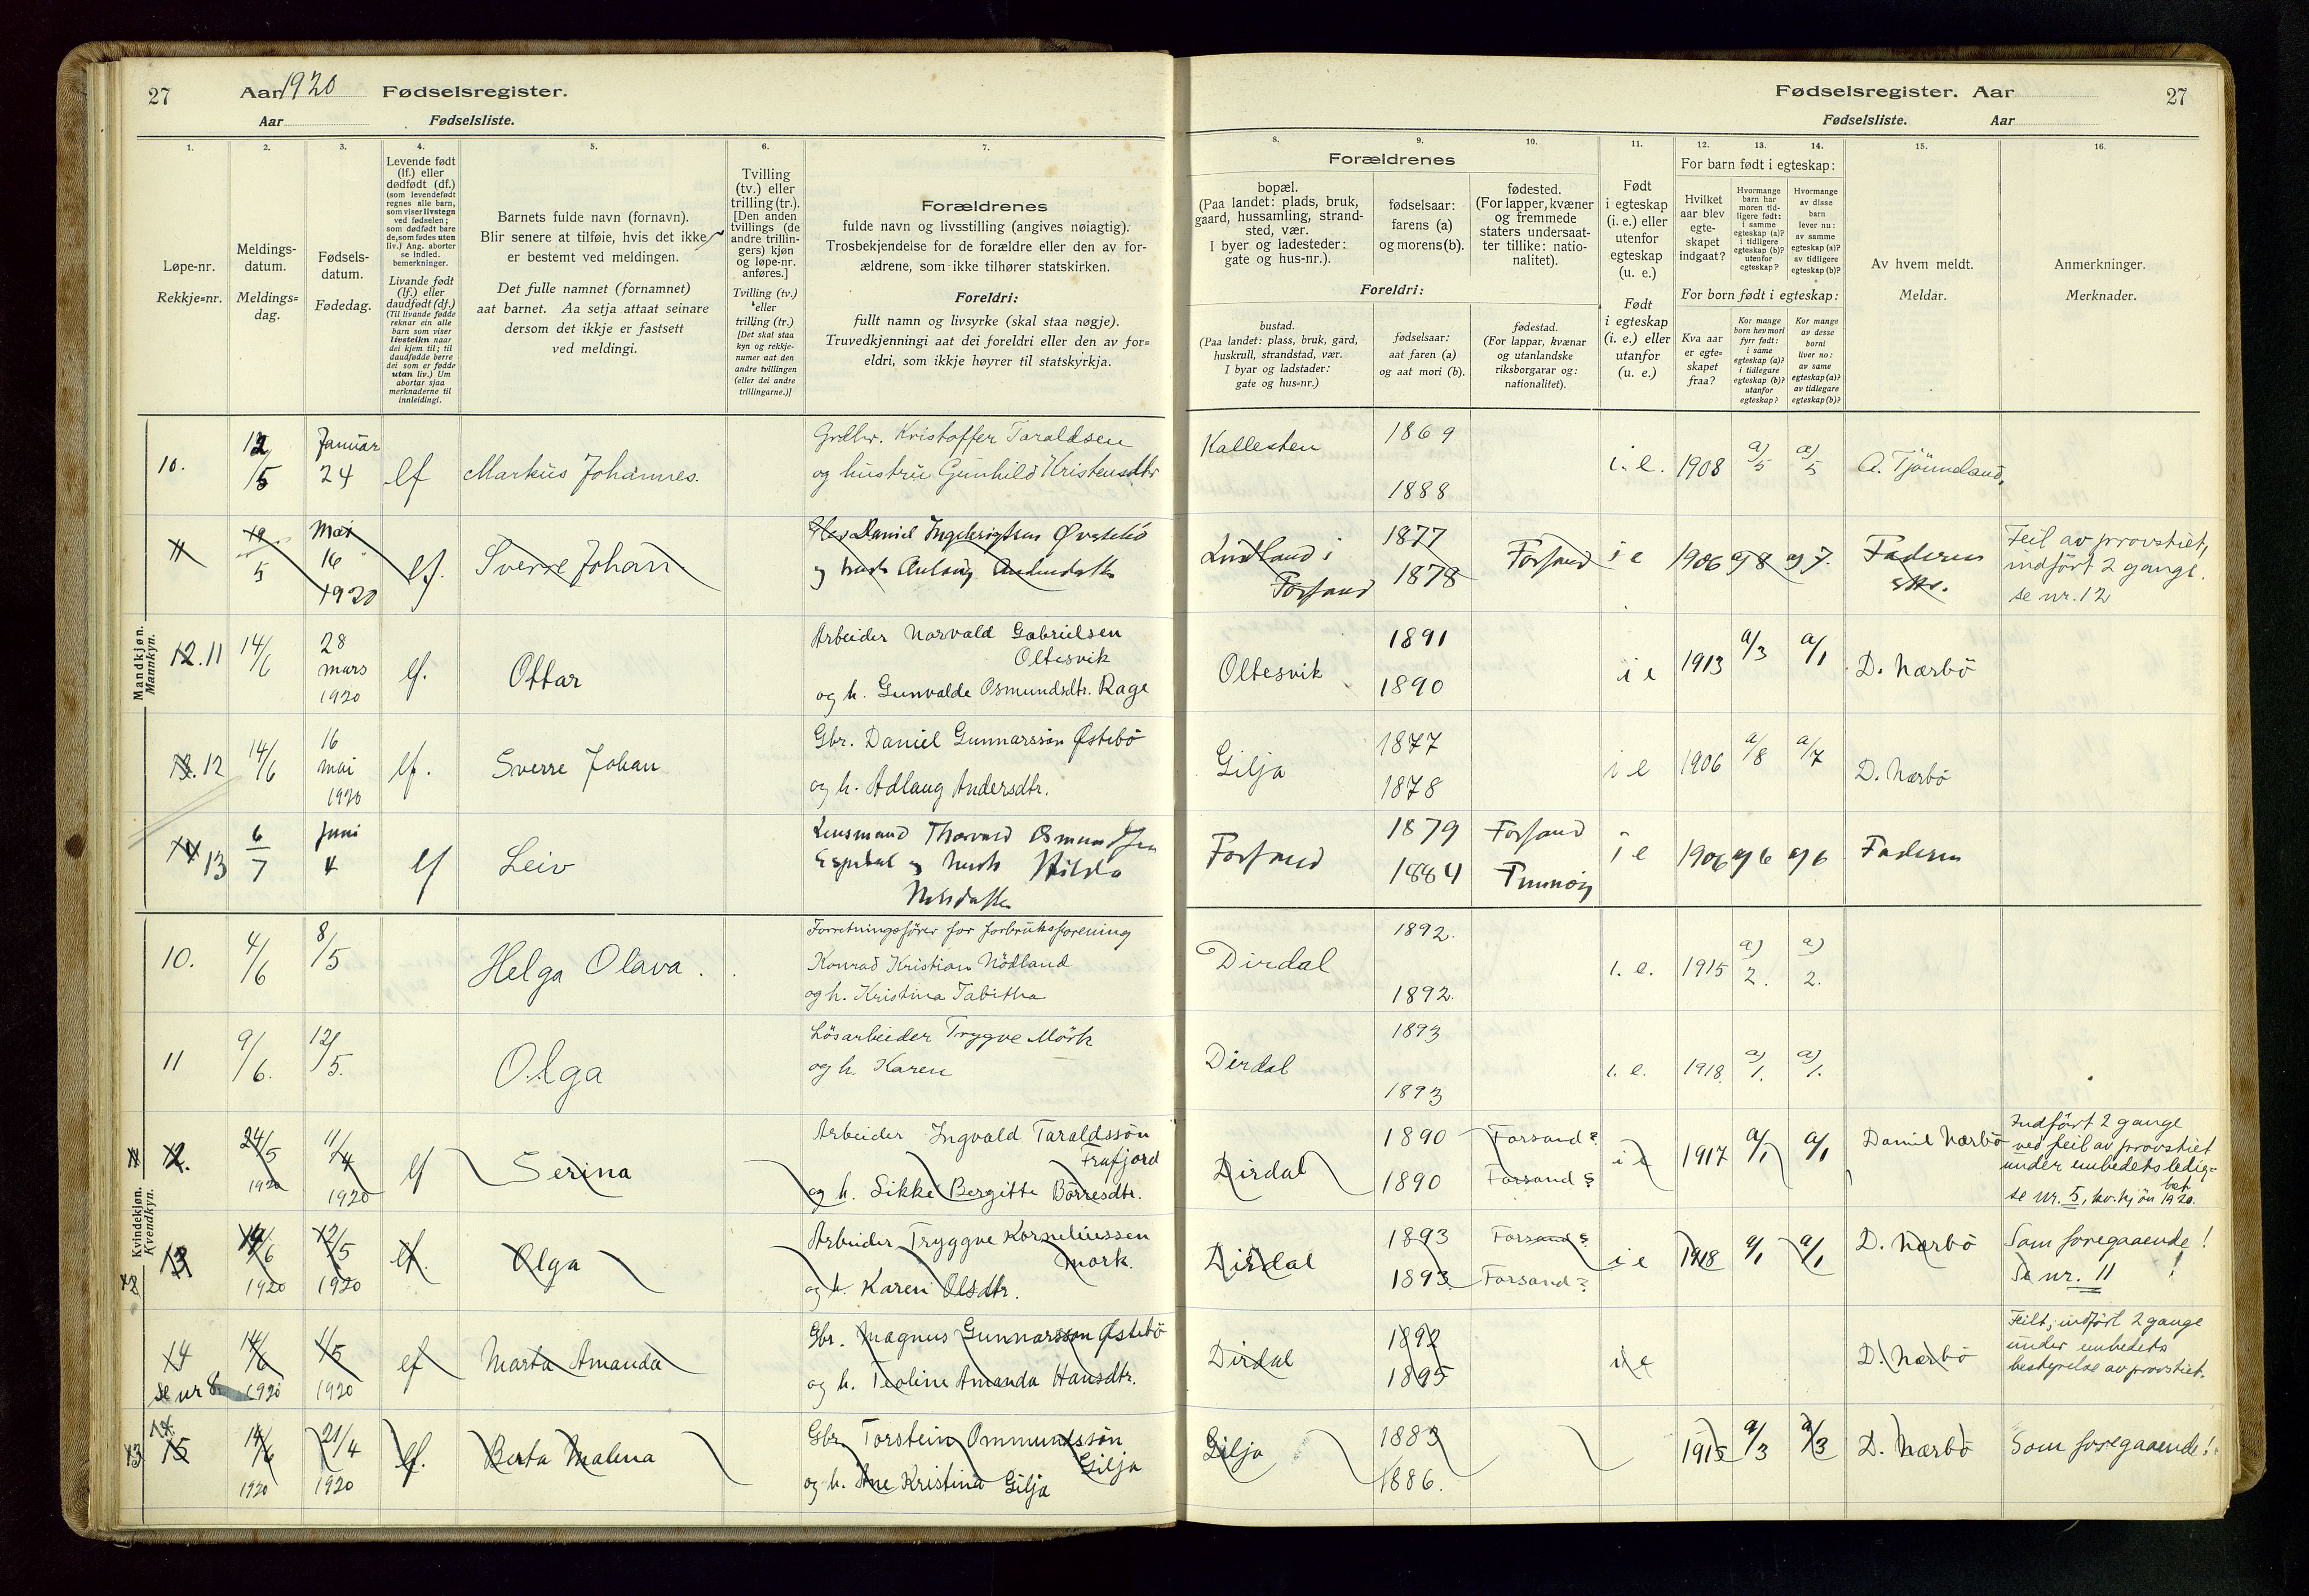 27 Aar 1920 Fødselsregister.
Aar Fødselsliste.
Fødselsregister. Aar 27
Fødselsliste. Aar
1.
Løpe-nr.
Rekkje=nr.
2.
Meldings-
datum.
Meldings=
dag.
3.
Fødsels-
datum.
Fødedag.
4.
Levende født
(lf.) eller
dødfødt (df.)
(som levendefødt
regnes alle barn,
som viser livstegn
ved fødselen;
som dødfødt bare
de, som fødes uten
liv.) Ang. aborter
se indled.
bemerkninger.
Livande født
(lf.) eller
daudfødt (df.)
(Til livande fødde
reknar ein alle
barn som viser
livsteikn naar
dei kjem til; til
daudfødde berre
dei som er fødde
utan liv.) Um
abortar sjaa
merknaderne til
innleidingi.
5.
Barnets fulde navn (fornavn).
Blir senere at tilføie, hvis det ikke
er bestemt ved meldingen.
Det fulle namnet (fornamnet)
aat barnet. Aa setja attaat seinare
dersom det ikkje er fastsett
ved meldingi.
6.
Tvilling
(tv.) eller
trilling (tr.).
[Den anden
tvillings (de
andre trillin-
gers) kjøn
og løpe-nr.
anføres.]
Tvilling (tv.)
eller
trilling (tr.)
[Det skal staa
kyn og rekkje-
numer aat den
andre tvillingen
(eller dei andre
trillingarne.)]
7.
Forældrenes
fulde navn og livsstilling (angives nøiagtig).
Trosbekjendelse for de forældre eller den av for-
ældrene, som ikke tilhører statskirken.
Foreldri:
fullt namn og livsyrke (skal staa nøgje).
Truvedkjenningi aat dei foreldri eller den av for=
eldri, som ikkje høyrer til statskyrkja.
8. 9. 10.
Forældrenes
bopæl.
(Paa landet: plads, bruk,
gaard, hussamling, strand-
sted, vær.
I byer og ladesteder:
gate og hus-nr.).
fødselsaar:
farens (a)
og morens (b).
fødested.
(For lapper, kvæner
og fremmede
staters undersaat-
ter tillike: natio-
nalitet).
Foreldri:
bustad.
(Paa landet: plass, bruk, gard,
huskrull, strandstad, vær.
I byar og ladstader:
gate og hus=nr.)
fødselsaar:
aat faren (a)
og aat mori (b).
fødestad.
(For lappar, kvænar
og utanlandske
riksborgarar og:
nationalitet).
11.
Født
i egteskap
(i. e.) eller
utenfor
egteskap
(u. e.)
Født
i egteskap
(i. e.) eller
utanfor
(u. e.)
12. 13. 14.
For barn født i egteskap:
Hvilket
aar blev
egte-
skapet
indgaat?
Hvormange
barn har
moren tid-
ligere født:
i samme
egteskap (a)?
i tidligere
egteskap (b)?
utenfor
egteskap?
Hvormange
av disse
barn
lever nu:
av samme
egteskap (a)?
av tidligere
egteskap (b)?
For born født i egteskap:
Kva aar
er egte-
skapet
fraa?
Kor mange
born hev mori
fyrr født:
i same
egteskap (a)?
i tidlegare
egteskap (b)?
utanfor
egteskap?
Kor mange
av desse
borni
liver no:
av same
egteskap (a)?
av tidlegare
egteskap (b)?
15.
Av hvem meldt.
Meldar.
16.
Anmerkninger.
Merknader.
Mandkjøn.
Mannkyn.
10. 12/5 Januar 24 lf Markus Johannes. Grdbr. Kristoffer Taraldsen
og hustru Gunhild Kristensdtr Kallesten 1869 1888 i. e. 1908 a) 5 a) 5 A. Tjönneland,
11 19/5 Mai 16 1920 lf. Sverre Johan Daniel Ingebrigtsen Øvstebö
og Lindland i Forsand 1877 1878 Forsand i e 1906 a) 8 a) 7. Faderen
Feil av provstiet,
indført 2 gange.
se nr. 12
12. 11 14/6 28 mars 1920 lf. Ottar Arbeider Norvald Gabrielsen
Oltesvik
og h. Gunvalde Osmundsdtr. Rage Oltesvik 1891 1890 i e 1913 a/3 a/1 D. Nærbö
13. 12 14/6 16 mai 1920 lf. Sverre Johan Gbr. Daniel Gunnarssön Østebö
og h. Adlaug Andersdtr. Gilja 1877 1878 i e 1906 a/8 a/7 D. Nærbö
14 13 6/7 Juni 4 lf Leiv Lensmand Thorvald Osmundsen
Espedal og hustr Hilda
Nilsdatter Forsand 1879 1884 Forsand i e 1906 a) 6 a) 6 Faderen
Kvindekjøn.
Kvendkyn.
10. 4/6 8/5 Helga Olava. Forretningsfører for forbruksforening
Konrad Kristian Nödland
og h. Kristina Tabitha Dirdal 1892. 1892. i. e. 1915 a) 2. a) 2.
11 9/6. 12/5. Olga Lösarbeider Trygve Mörk
og h. Karen Dirdal 1893 1893 i. e. 1918 a) 1. a) 1.
11 12. 24/5 1920 11/4 1920 lf Serina Arbeider Ingvald Taraldssön
Frafjord
og h. Sikke Bergitte Börresdtr. Dirdal 1890 1890 Forsand? Forsand? i e 1917 a/1 a/1 Daniel Nærbö
Indført 2 gange
ved feil av provstiet
under embedets ledig-
het
se nr. 5, kv.kjön 1920.
12 13 14/6 1920 12/5 1920 lf. Olga Arbeider Tryggve Korneliussen
Mork.
og h. Karen Olsdtr. Dirdal 1893 1893 Forsand? Forsand? i e 1918 a/1 a/1 D. Nærbö
Som foregaaende!
Se nr. 11 !
14 se nr 8. 14/6 1920 1/5 1920 lf Marta Amanda Gbr. Magnus Gunnarsson Østebö
og h. Teoline Amanda Hansdtr. Dirdal 1892 1895 i e D. Nærbö
Feilt, indført 2 gange
under embedets
bestyrelse av provstiet.
13 14. 15 14/6 1920 21/4 1920 lf. Berta Malena Gbr. Torstein Ommundssön
Gilja
og h. Ane Kristina Gilja Gilja 1883 1886. 1915 a/3 a/3 D. Nærbö Som foregaaende!